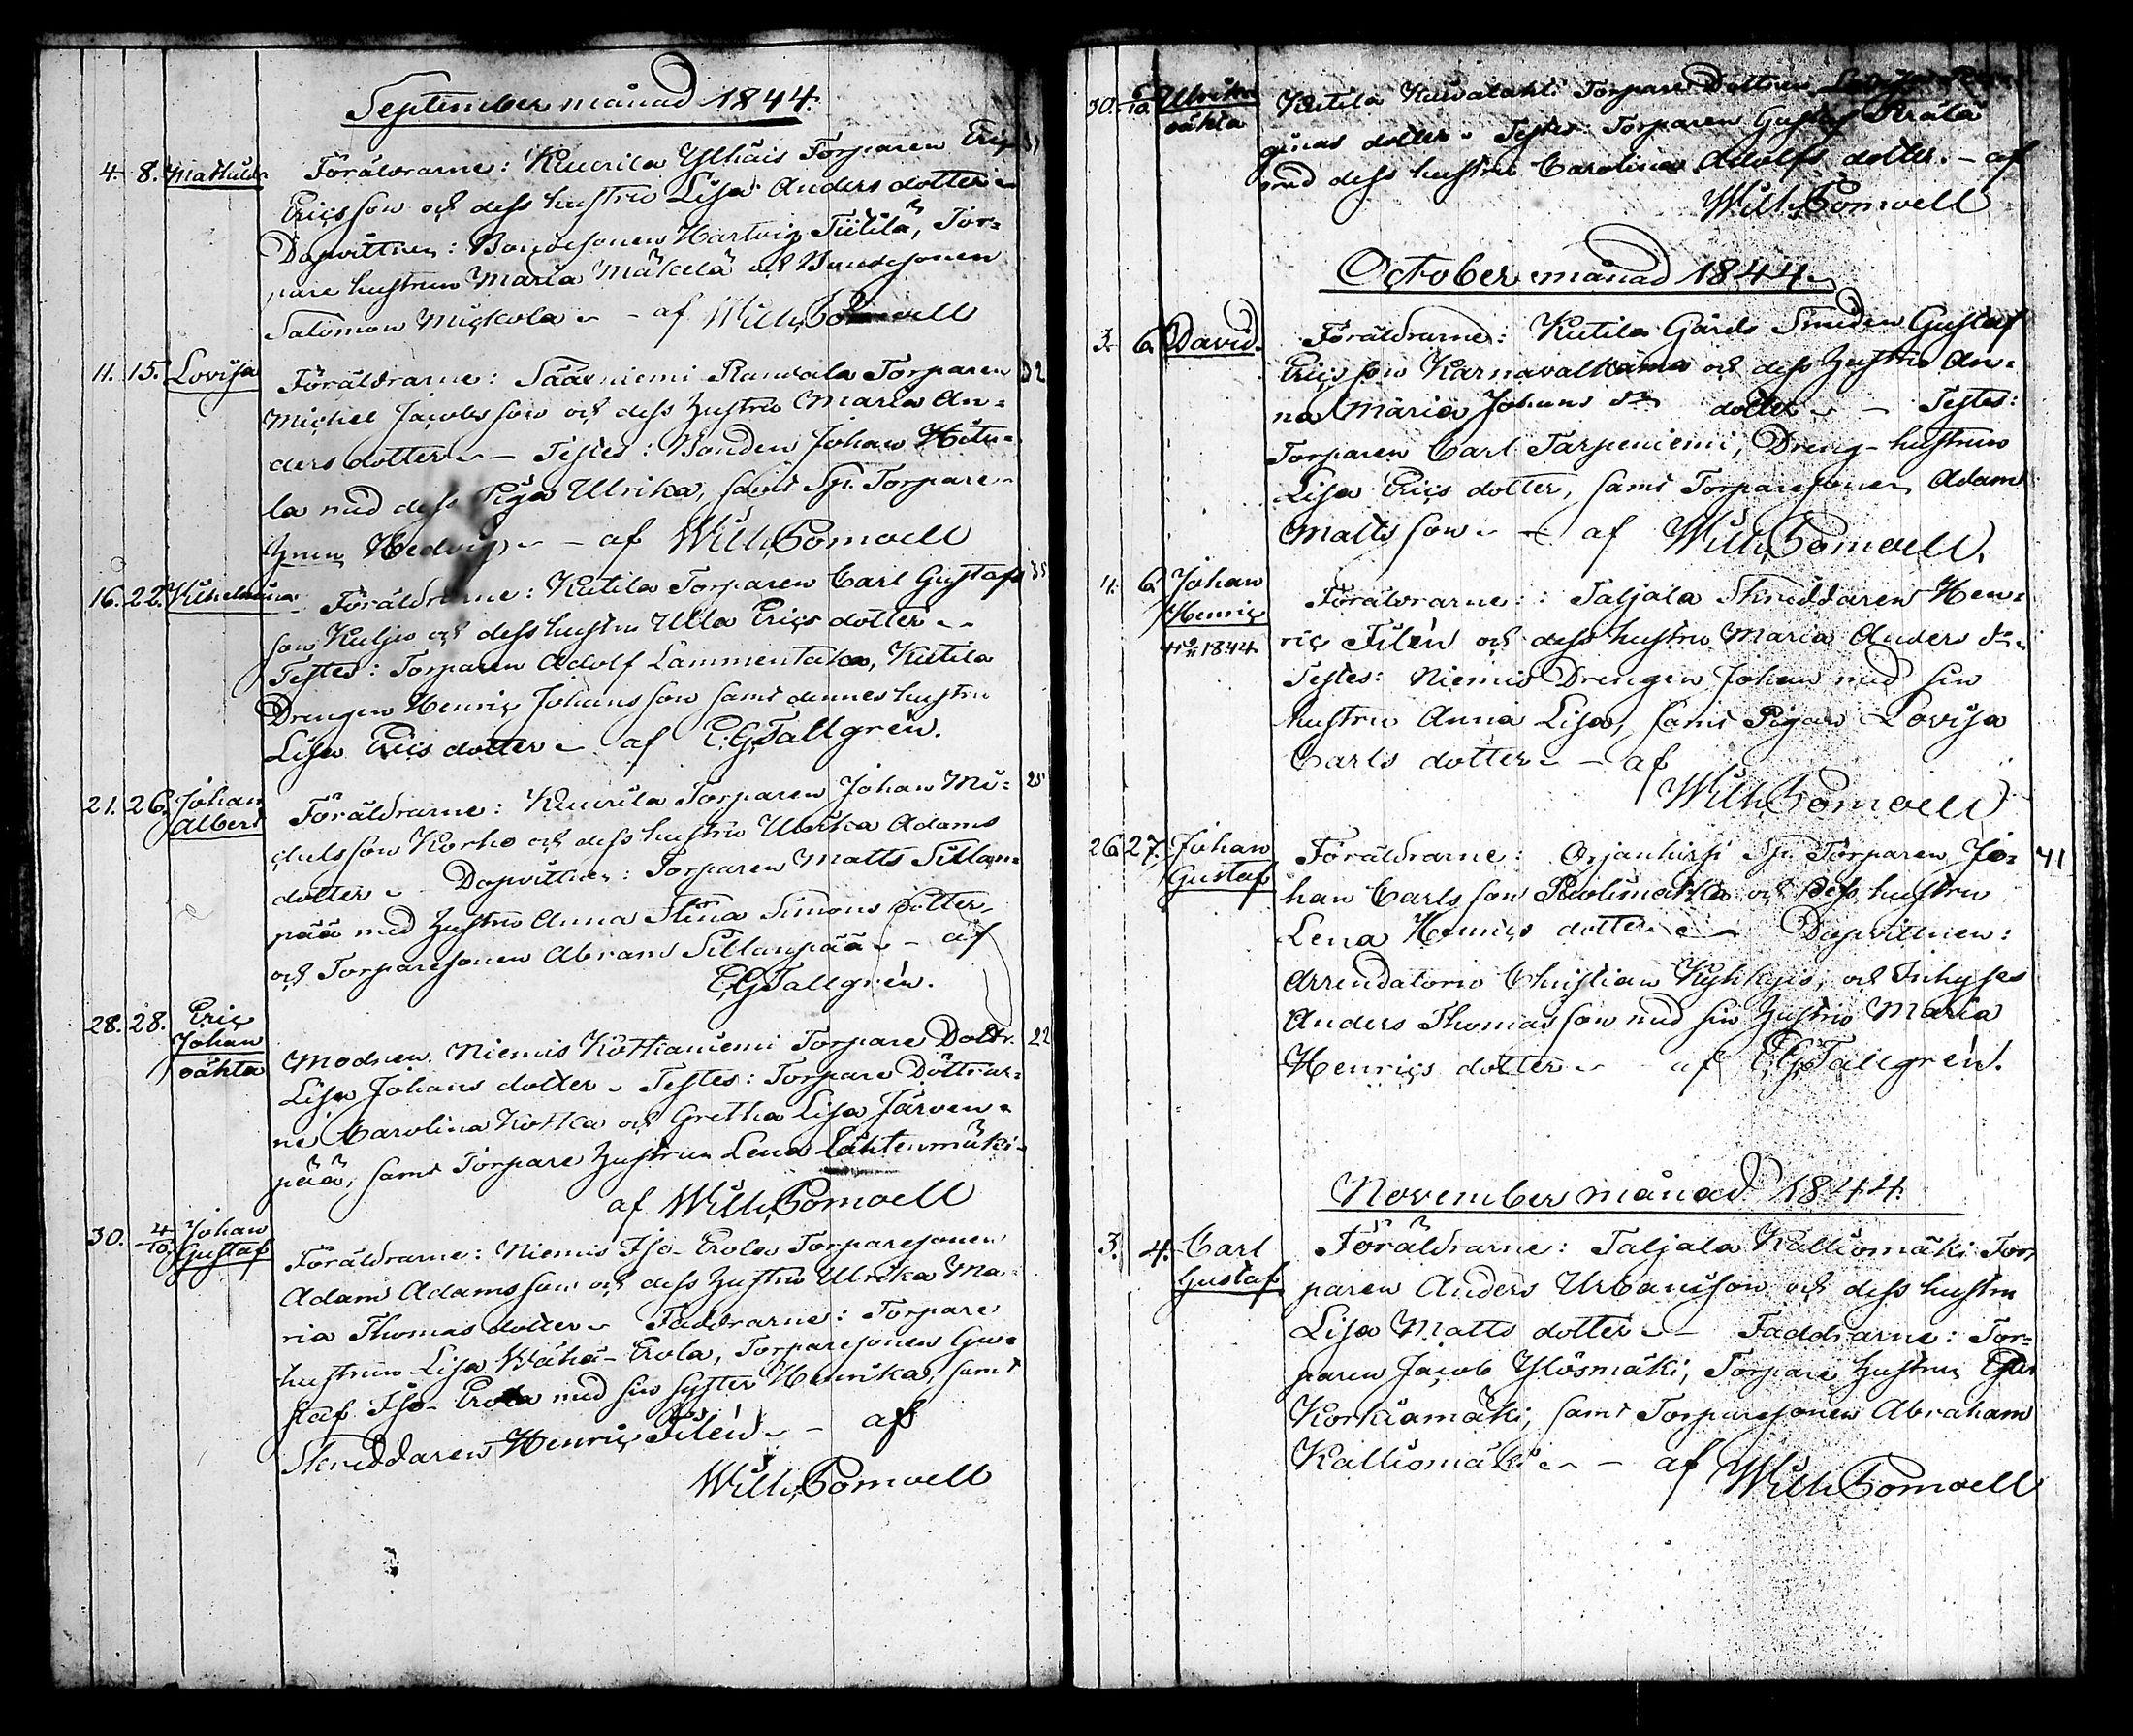 September månad 1844.
4. 8. Mathilda Föräldrarne: Kuurila Ylhäis Torparen Eriç 31
Ericsson och dess hustru Lisa Anders dotter
Dopvittnen: Bondesonen Hartvig Tiitilä, Tor=
pare hustrun Maria Mäkelä och Bondesonen
Salomon Mickola – af Wilh. Pomoell
11. 15. Lovisa Föräldrarne: Sääxniemi Randala Torparen 32
Michel Jacobsson och dess Hustru Maria An=
ders dotter – Testes: Bonden Johan
la med dess Piga Ulrika, samt Sp. Torpare
Hedvig – af Wilh. Pomoell
16. 22. Vilhelmina Föräldrarne: Kutila Torparen Carl Gustafs 35
son Kuljo och dess hustru Ulla Erics dotter
Testes: Torparen Adolf Lammentaka, Kutila
Drengen Henriç Johansson samt dennes hustru
Lisa Erics dotter – af E.G. Tallgrén.
21. 26. Johan Föräldrarne: Kuurila Torparen Johan Mi= 25
Albert chelsson Korho och dess hustru Ulrika Adams
dotter – Dopvittnen: Torparen Matts Sillan=
pää med Hustru Anna Stina Simons dotter,
och Torparesonen Abram Sillanpää – af
E.G. Tallgrén.
28. 28. Eriç
Johan Modren Niemis Kotkaniemi Torpare Dottr. 22
oäkta Lisa Johans dotter – Testes: Torpare Döttrar=
ne Carolina Kotka och Gretha Lisa Järven=
pää, samt Torpare Hustrun Lena Lähtenmäki
af Wilh. Pomoell
30. 4/10. Johan
Gustaf Föräldrarne: Niemis Iso-Erola Torparesonen
Adam Adamsson och dess Hustru Ulrika Ma=
ria Thomas dotter – Faddrarne: Torpare
hustrun Lisa Wähä-Erola, Torparesonen Gus=
taf Iso-Erola med sin syster Henrika, samt
Skreddaren Henriç Filén – af
Wilh. Pomoell
30. 6/10. Ulrika Kutila Torpare Dottren Lovisa Re
oäkta ginas dotter – Testes: Torparen Gustaf
med dess hustru Carolina Adolfs dotter – af
Wilh. Pomoell
October månad 1844
3. 6. David. Föräldrarne: Kutila Gårds Smeden Gustaf
Ericsson Karnavalkama och dess Hustru An=
na Maria Johans dotter – Testes:
Torparen Carl Tarpeniemi, Dreng-hustrun
Lisa Erics dotter, samt Torparesonen Adam
Mattsson – af Wilh. Pomoell.
4. 6. Johan
Henriç Föräldrarne: Taljala Skreddaren Hen=
1844 riç Filén och dess hustru Maria Anders dr.
Testes: Niemis Drengen Johan med sin
hustru Anna Lisa, samt Pigan Lovisa
Carls dotter – af
Wilh. Pomoell
26. 27. Johan Föräldrarne: Orjanhirsi Sp. Torparen Jo= 41
Gustaf han Carlsson och dess hustru
Lena Henriçs dotter – Dopvittnen:
Arrendatorn Christian Kyhkyis, och Inhyses
Anders Thomasson med sin Hustru Maria
Henriçs dotter – af E.G. Tallgrén.
November månad 1844.
3. 4. Carl Föräldrarne: Taljala Kalliomäki Tor
Gustaf paren Anders Urbansson och dess hustru
Lisa Matts dotter – Faddrarne: Tor=
paren Jacob Ylösmäki, Torpare Hustrun
Korkiamäki, samt Torparesonen Abraham
Kalliomäki – af Wilh Pomoell